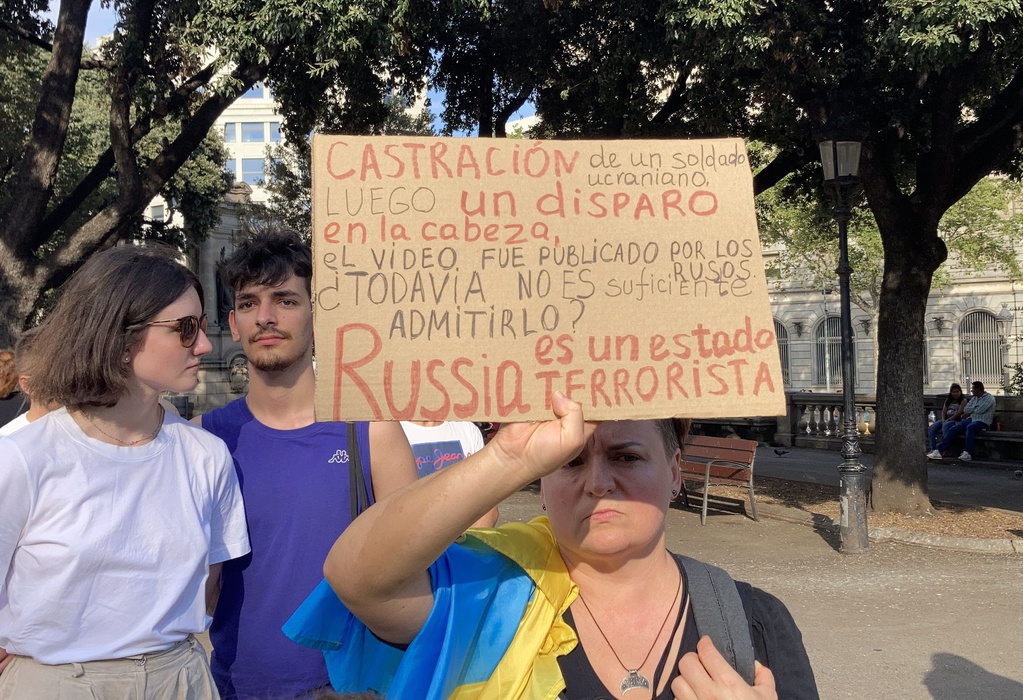 CASTRACIÓN de un soldado
ucraniano,
LUEGO un disparo
en la cabeza,
eL VIDEO FUE PUBLICADO POR LOS
RUSOS.
¿TODAVIA NO ES suficiente
ADMITIRLO?
Russia es un estado
TERRORISTA
Kappa